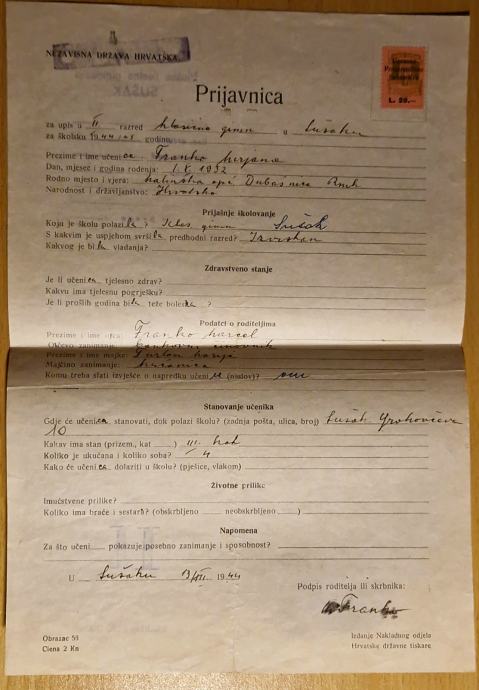 NEZAVISNA DRŽAVA HRVATSKA.
SUŠAK
L. 20.—
Prijavnica
za upis u II razred klasične gimn u Sušaku
za školsku 1944/45 godinu
Prezime i ime učenica Franko Mirjana
Dan, mjesec i godina rođenja: 1. X. 1932
Rodno mjesto i vjera: Malinska opć Dubašnica Rmk
Narodnost i državljanstvo: Hrvatska
Prijašnje školovanje
Koju je školu polazila? Klas. gimn Sušak
S kakvim je uspjehom svršila predhodni razred? Izvrstan
Kakvog je bila vladanja?
Zdravstveno stanje
Je li učenica tjelesno zdrav?
Kakvu ima tjelesnu pogrješku?
Je li prošlih godina bila teže bolestna?
Podatci o roditeljima
Prezime i ime otca: Franko
Otčevo zanimanje: činovnik
Prezime i ime majke:
Majčino zanimanje: kućanica
Komu treba slati izvješće o napredku učenice (naslov)? ocu
Stanovanje učenika
Gdje će učenica stanovati, dok polazi školu? (zadnja pošta, ulica, broj) Sušak
10
Kakav ima stan (prizem., kat ) III. kat
Koliko je ukućana i koliko soba? 4
Kako će učenica dolaziti u školu? (pješice, vlakom)
Životne prilike
Imućstvene prilike?
Koliko ima braće i sestara? (obskrbljeno neobskrbljeno )
Napomena
Za što učeni pokazuje posebno zanimanje i sposobnost?
U Sušaku 1944
Podpis roditelja ili skrbnika:
Franko
Obrazac 53
Ciena 2 Kn
Izdanje Nakladnog odjela
Hrvatske državne tiskare